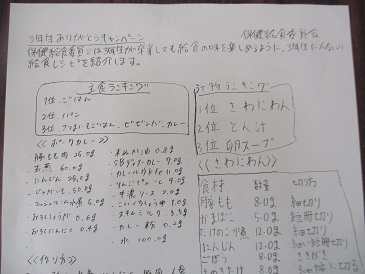 3年生ありがとうキャンペーン
保健給食委員会
保健給食委員会では3年生が卒業しても給食の味を楽しめるように、3年生に人気の
給食レシピを紹介します。
主食ランキング
1位 ごはん
2位 パン
3位 さつまいもごはん、ビビンバ、カレー
汁物ランキング
1位 さわにわん
2位 とん汁
3位 卵スープ
《ポークカレー》
豚もも肉 25.0g
玉葱 60.0g
にんじん 25.0g
じゃがいも 50.0g
マッシュルーム水煮 5.0g
おろししょうが 0.6g
おろしにんにく 0.4g
・米ぬか油 0.8g
・SBディナーカレー 9.0g
・カレールウ
・りんごピューレ
・中濃ソース 2.0g
・こいくちしょうゆ 1.0g
・スキムミルク 3.5g
・カレー粉 0.2g
・水 100.0g
《作り方》
《さわにわん》
食材 数量 切り方
豚もも 8.0g 細切り
かまぼこ 5.0g 短冊切り
たけのこ水煮 12.0g 細切り
にんじん 12.0g 細い短冊切り
ごぼう 8.0g ささがき
えのきたけ 8.0g